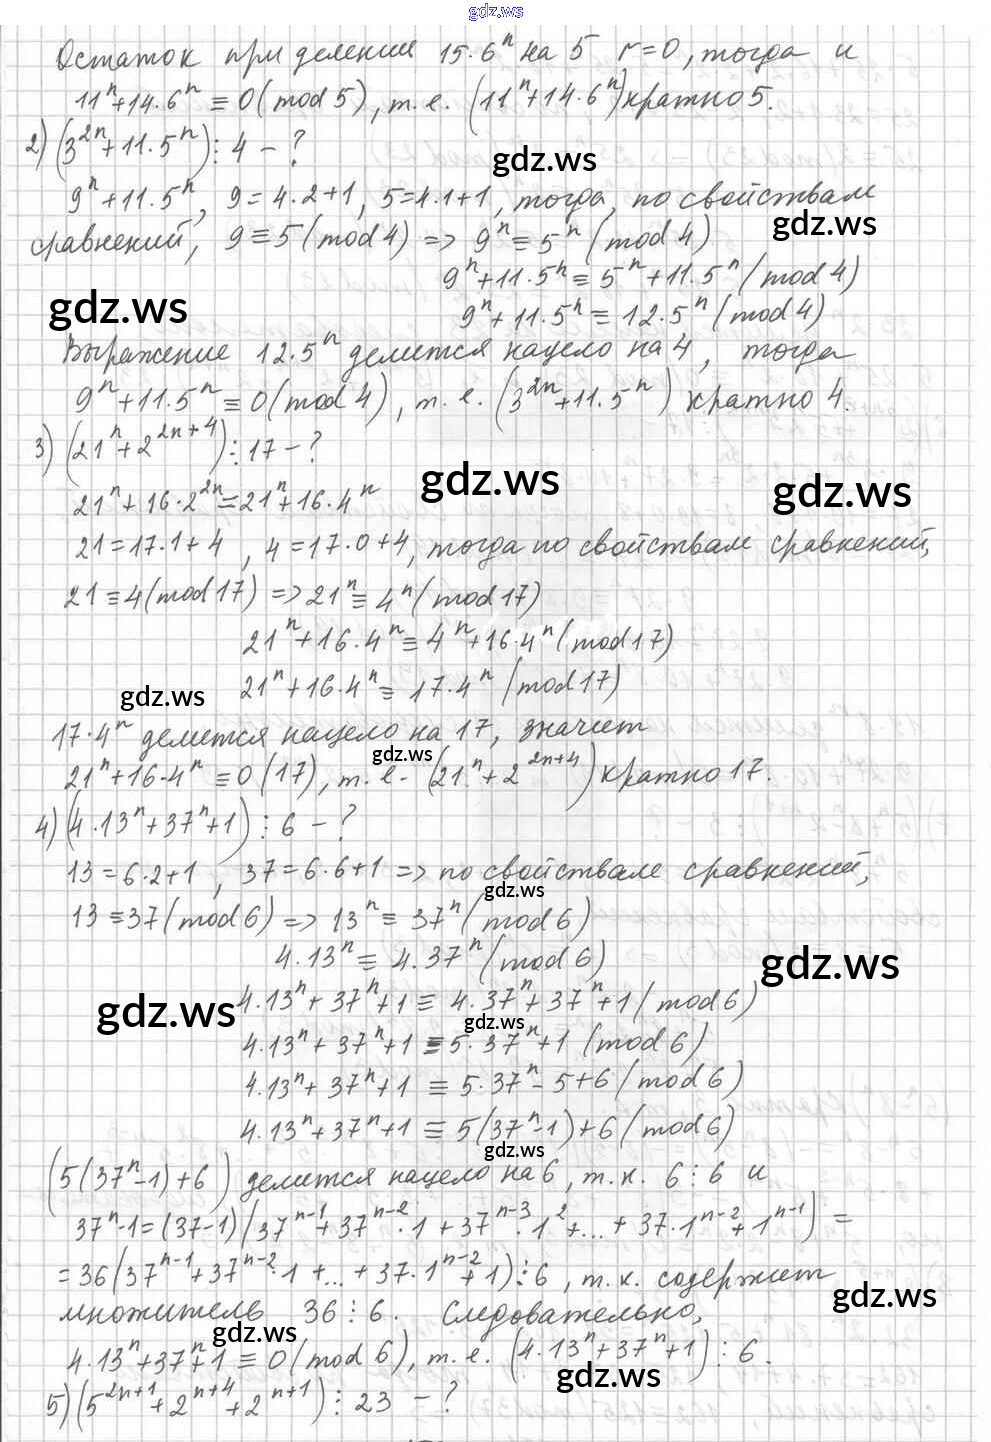 gdz.ws
Остаток при делении 15·6ⁿ на 5 r=0, тогда и
11ⁿ+14·6ⁿ ≡ 0 (mod 5), т.е. (11ⁿ+14·6ⁿ) кратно 5.
2) (3²ⁿ+11·5ⁿ) ⋮ 4 – ?
gdz.ws
9ⁿ+11·5ⁿ, 9=4·2+1, 5=4·1+1, тогда, по свойствам
gdz.ws
сравнений, 9≡5 (mod 4) => 9ⁿ≡5ⁿ (mod 4)
9ⁿ+11·5ⁿ≡5ⁿ+11·5ⁿ (mod 4)
gdz.ws
9ⁿ+11·5ⁿ≡12·5ⁿ (mod 4)
Выражение 12·5ⁿ делится нацело на 4, тогда
9ⁿ+11·5ⁿ≡0 (mod 4), т.е. (3²ⁿ+11·5ⁿ) кратно 4.
3) (21ⁿ+2²ⁿ⁺⁴) ⋮ 17 – ?
gdz.ws
gdz.ws
21ⁿ+16·2²ⁿ=21ⁿ+16·4ⁿ
21=17·1+4, 4=17·0+4, тогда по свойствам сравнений,
21≡4 (mod 17) => 21ⁿ≡4ⁿ (mod 17)
21ⁿ+16·4ⁿ≡4ⁿ+16·4ⁿ (mod 17)
21ⁿ+16·4ⁿ≡17·4ⁿ (mod 17)
gdz.ws
17·4ⁿ делится нацело на 17, значит
gdz.ws
21ⁿ+16·4ⁿ≡0 (17), т.е. (21ⁿ+2²ⁿ⁺⁴) кратно 17.
4) (4·13ⁿ+37ⁿ+1) ⋮ 6 – ?
13=6·2+1, 37=6·6+1 => по свойствам сравнений,
gdz.ws
13≡37 (mod 6) => 13ⁿ≡37ⁿ (mod 6)
4·13ⁿ≡4·37ⁿ (mod 6)
gdz.ws
4·13ⁿ+37ⁿ+1≡4·37ⁿ+37ⁿ+1 (mod 6)
gdz.ws
gdz.ws
4·13ⁿ+37ⁿ+1≡5·37ⁿ+1 (mod 6)
4·13ⁿ+37ⁿ+1≡5·37ⁿ-5+6 (mod 6)
4·13ⁿ+37ⁿ+1≡5(37ⁿ-1)+6 (mod 6)
gdz.ws
(5(37ⁿ-1)+6) делится нацело на 6, т.к. 6⋮6 и
37ⁿ-1=(37-1)(37ⁿ⁻¹+37ⁿ⁻²·1+37ⁿ⁻³·1²+...+37·1ⁿ⁻²+1ⁿ⁻¹)=
=36(37ⁿ⁻¹+37ⁿ⁻²·1+...+37·1ⁿ⁻²+1)⋮6, т.к. содержит
gdz.ws
множитель 36⋮6. Следовательно,
gdz.ws
4·13ⁿ+37ⁿ+1≡0 (mod 6), т.е. (4·13ⁿ+37ⁿ+1)⋮6.
gdz.ws
5) (5²ⁿ⁺¹+2ⁿ⁺⁴+2ⁿ⁺¹) ⋮ 23 – ?